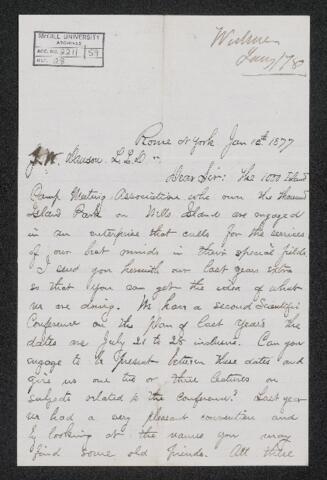 McGILL UNIVERSITY
ARCHIVES
ACC. NO. 2211 59
REF.
Jany 1878
Rome N York Jan 12th 1877
J. W. Dawson. L.L.D.
Dear Sir: The 1000 Island
Camp Meeting Association who own the Thousand
Island Park on Wells Island are engaged
in an enterprise that calls for the services
of our best minds in their special fields
I send you herewith our last years
so that you can get the idea of what
we are doing. We have a second Scientific
Conference on the plan of last years the
dates are July 21 to 25 inclusive. Can you
engage to be present between these dates and
give us one two or three lectures on
subjects related to the Conference? Last year
we had a very pleasant convention and
by looking at the names you may
find some old friends. All